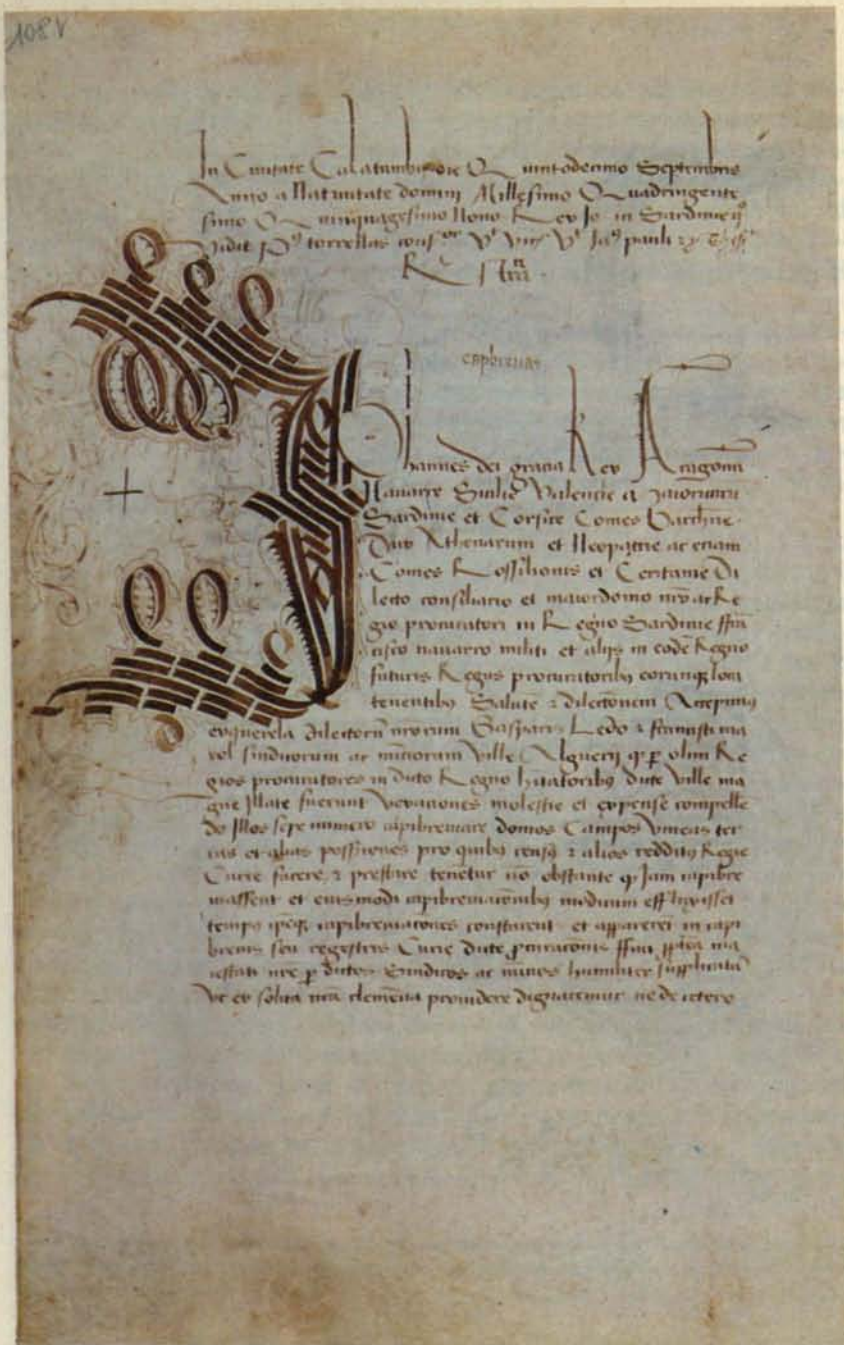 108 V
In Civitate Calatambi die Quintodecimo Septembris
Anno a Nativitate domini Millesimo Quadringente
simo Quinquagesimo Nono Rex Jo in Sardinie
vidit Ps torrellas cons
116
capbrevias
Johannes dei gracia Rex Aragonum
Navarre Sicilie Valencie Maioricarum
Sardinie et Corsice Comes Barchine
Dux Athenarum et Neopatrie ac etiam
Comes Rossilionis et Ceritanie Di
lecto consiliario et maiordomo nro ac Re
gio procuratori in Regno Sardinie ffran
cisco navarro militi et alijs in eodē Regno
futuris Regiis procuratoribȝ eorumqȝ locū
tenentibȝ Salutē ⁊ dilectionem Accepimus
ex querela dilectorū nrorum Gasparis Ledo ⁊ ffrancisci ma
rol sindicorum ac nunciorum Ville Alguerij qꝫ ꝑ olim Re
gios procuratores in dicto Regno hitatoribȝ dicte Ville ma
gne Illate fuerunt vexationes molestie et expense compellē
do Illos sepe numero capibrevare domos Campos Vineas ter
ras et alias possiones pro quibȝ censȝ ⁊ alios redditȝ Regie
Curie facere ⁊ prestare tenetur nō obstante qꝫ Jam capibre
vassent et eiusmodi capibrevationibȝ modicum effluxisset
tempȝ ipseqȝ capibrevationes constarent et apparerent in capi
brevis seu regestris Curie dicte ꝓcurationis ffuit ma
iestati nre ꝑ dictos Sindicos ac nūcios humiliter supplicatū
Vt ex solita nrā clemētia providere dignaremur ne de cetero